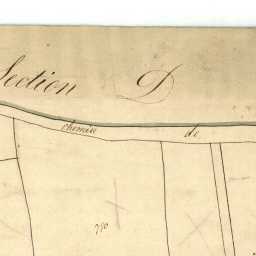 Section D
chemin de